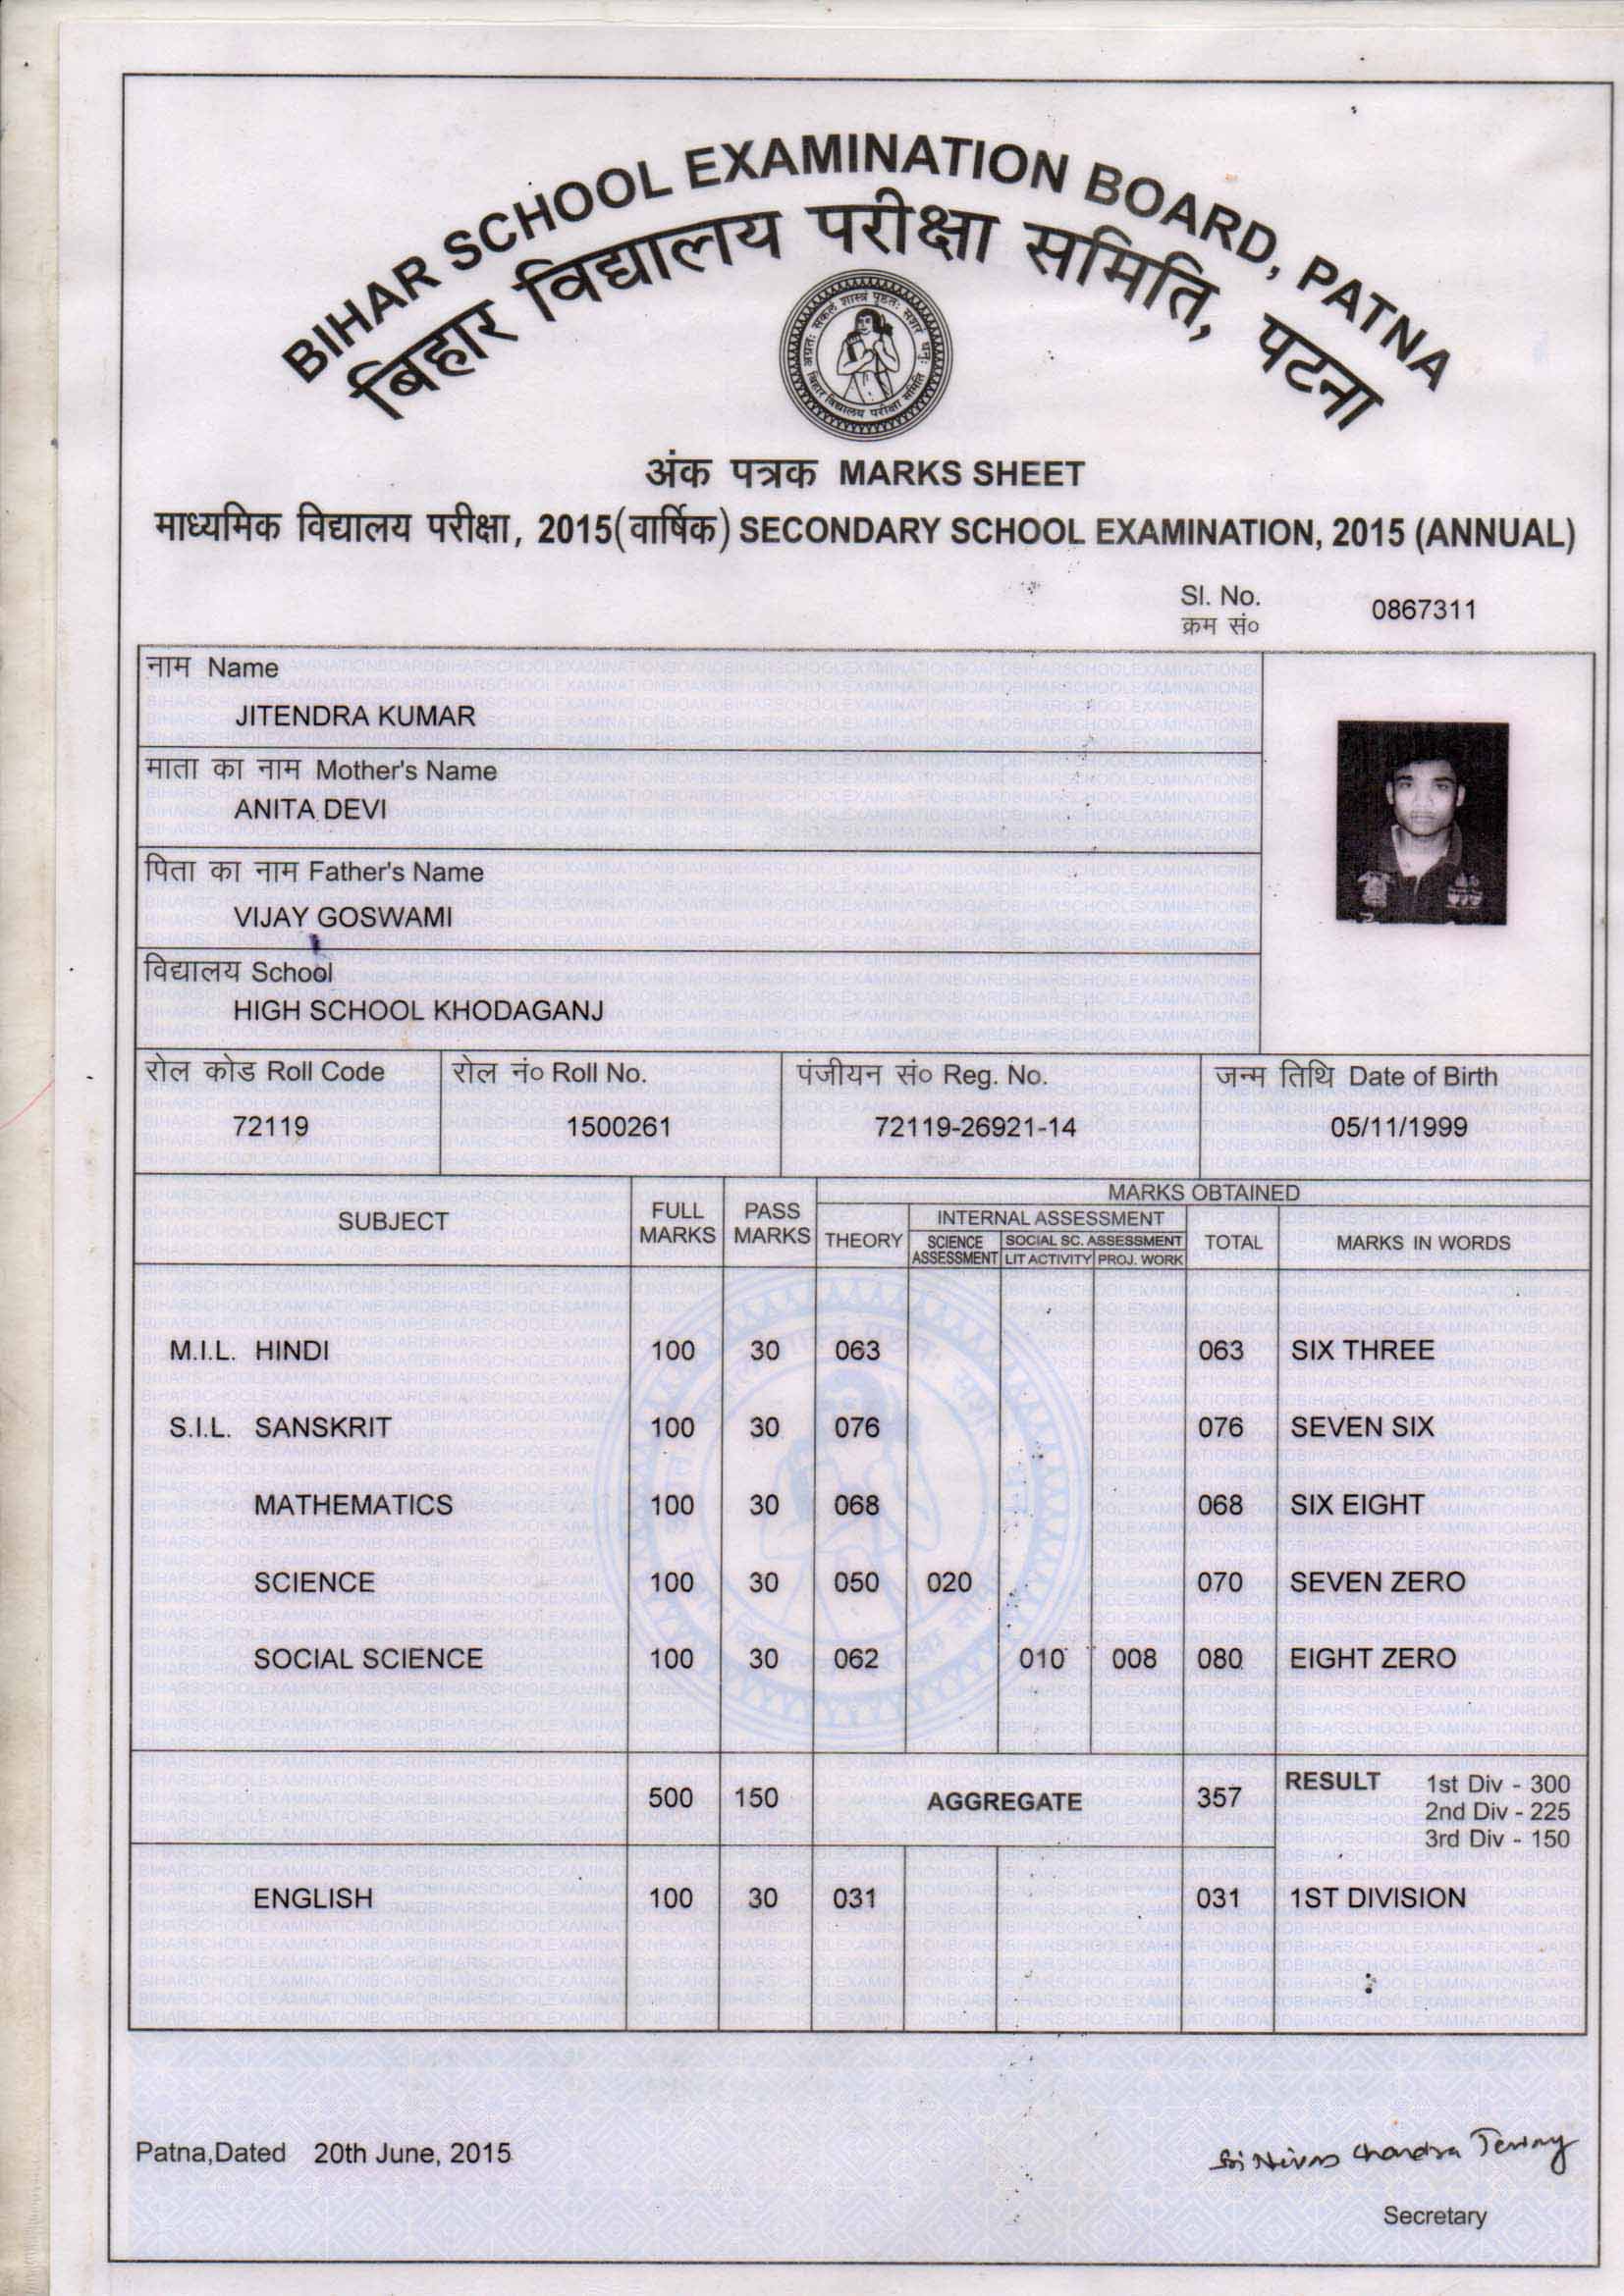 BIHAR SCHOOL EXAMINATION BOARD, PATNA
बिहार विद्यालय परीक्षा समिति, पटना
अंक पत्रक MARKS SHEET
माध्यमिक विद्यालय परीक्षा, 2015(वार्षिक) SECONDARY SCHOOL EXAMINATION, 2015 (ANNUAL)
Sl. No. 0867311
क्रम सं०
नाम Name
JITENDRA KUMAR
माता का नाम Mother's Name
ANITA DEVI
पिता का नाम Father's Name
VIJAY GOSWAMI
विद्यालय School
HIGH SCHOOL KHODAGANJ
रोल कोड Roll Code रोल नं० Roll No. पंजीयन सं० Reg. No. जन्म तिथि Date of Birth
72119 1500261 72119-26921-14 05/11/1999
MARKS OBTAINED
SUBJECT FULL MARKS PASS MARKS THEORY INTERNAL ASSESSMENT TOTAL MARKS IN WORDS
SCIENCE ASSESSMENT SOCIAL SC. ASSESSMENT
LIT ACTIVITY PROJ. WORK
M.I.L. HINDI 100 30 063 063 SIX THREE
S.I.L. SANSKRIT 100 30 076 076 SEVEN SIX
MATHEMATICS 100 30 068 068 SIX EIGHT
SCIENCE 100 30 050 020 070 SEVEN ZERO
SOCIAL SCIENCE 100 30 062 010 008 080 EIGHT ZERO
500 150 AGGREGATE 357 RESULT 1st Div - 300
2nd Div - 225
3rd Div - 150
ENGLISH 100 30 031 031 1ST DIVISION
Patna,Dated 20th June, 2015
Chandra
Secretary